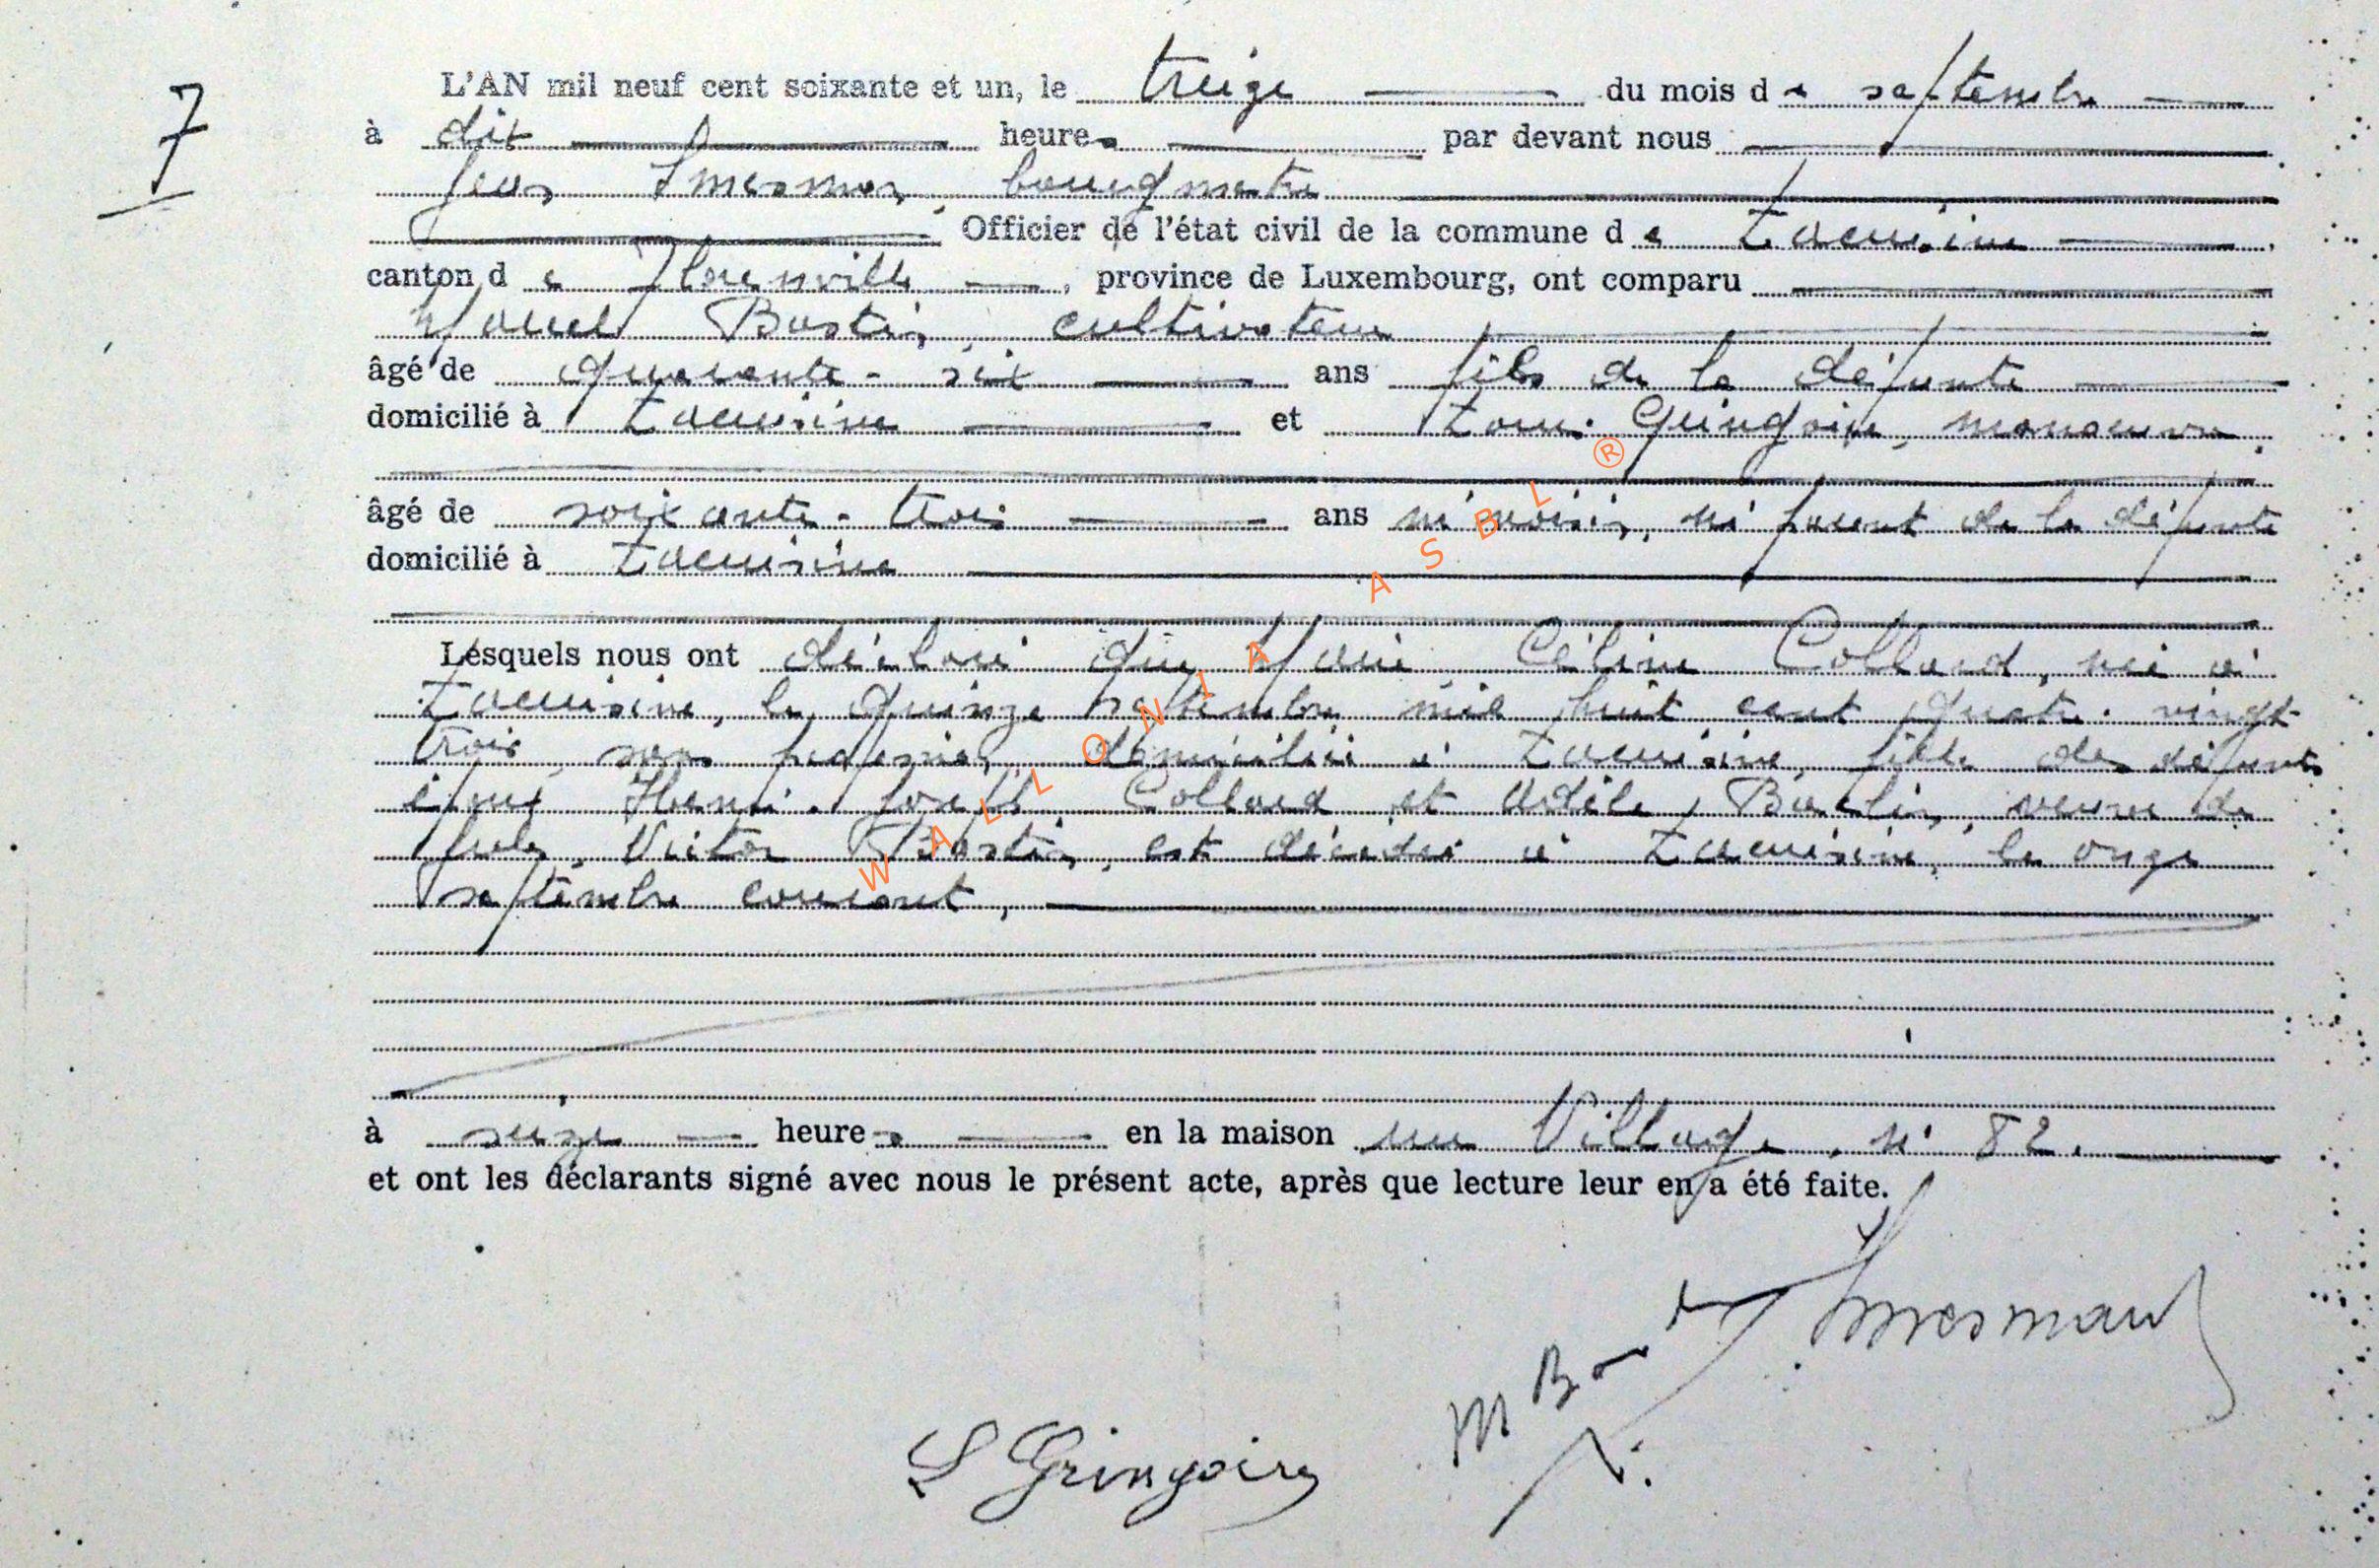 7
L'AN mil neuf cent soixante et un, le treize du mois de septembre
à dix heures par devant nous
Jean Smesman, bourgmestre
Officier de l'état civil de la commune de Lacuisine,
canton de Florenville, province de Luxembourg, ont comparu
Marcel Bastin, cultivateur
âgé de quarante-six ans fils de la défunte
domicilié à Lacuisine et Louis Gringoire, manoeuvre
âgé de soixante-trois ans ni voisin, ni parent de la défunte
domicilié à Lacuisine
Lesquels nous ont déclaré que Marie Céline Collard, née à
Lacuisine, le quinze septembre mil huit cent quatre-vingt
trois, sans profession, domiciliée à Lacuisine, fille des défunts
époux Henri-Joseph Collard et Adèle, veuve de
Jules Victor Bastin, est décédée à Lacuisine, le onze
septembre courant,
à seize heures en la maison rue Village, n° 82.
et ont les déclarants signé avec nous le présent acte, après que lecture leur en a été faite.
Smesman
M Bastin
L Gringoire
WALLONIA ASBL ®